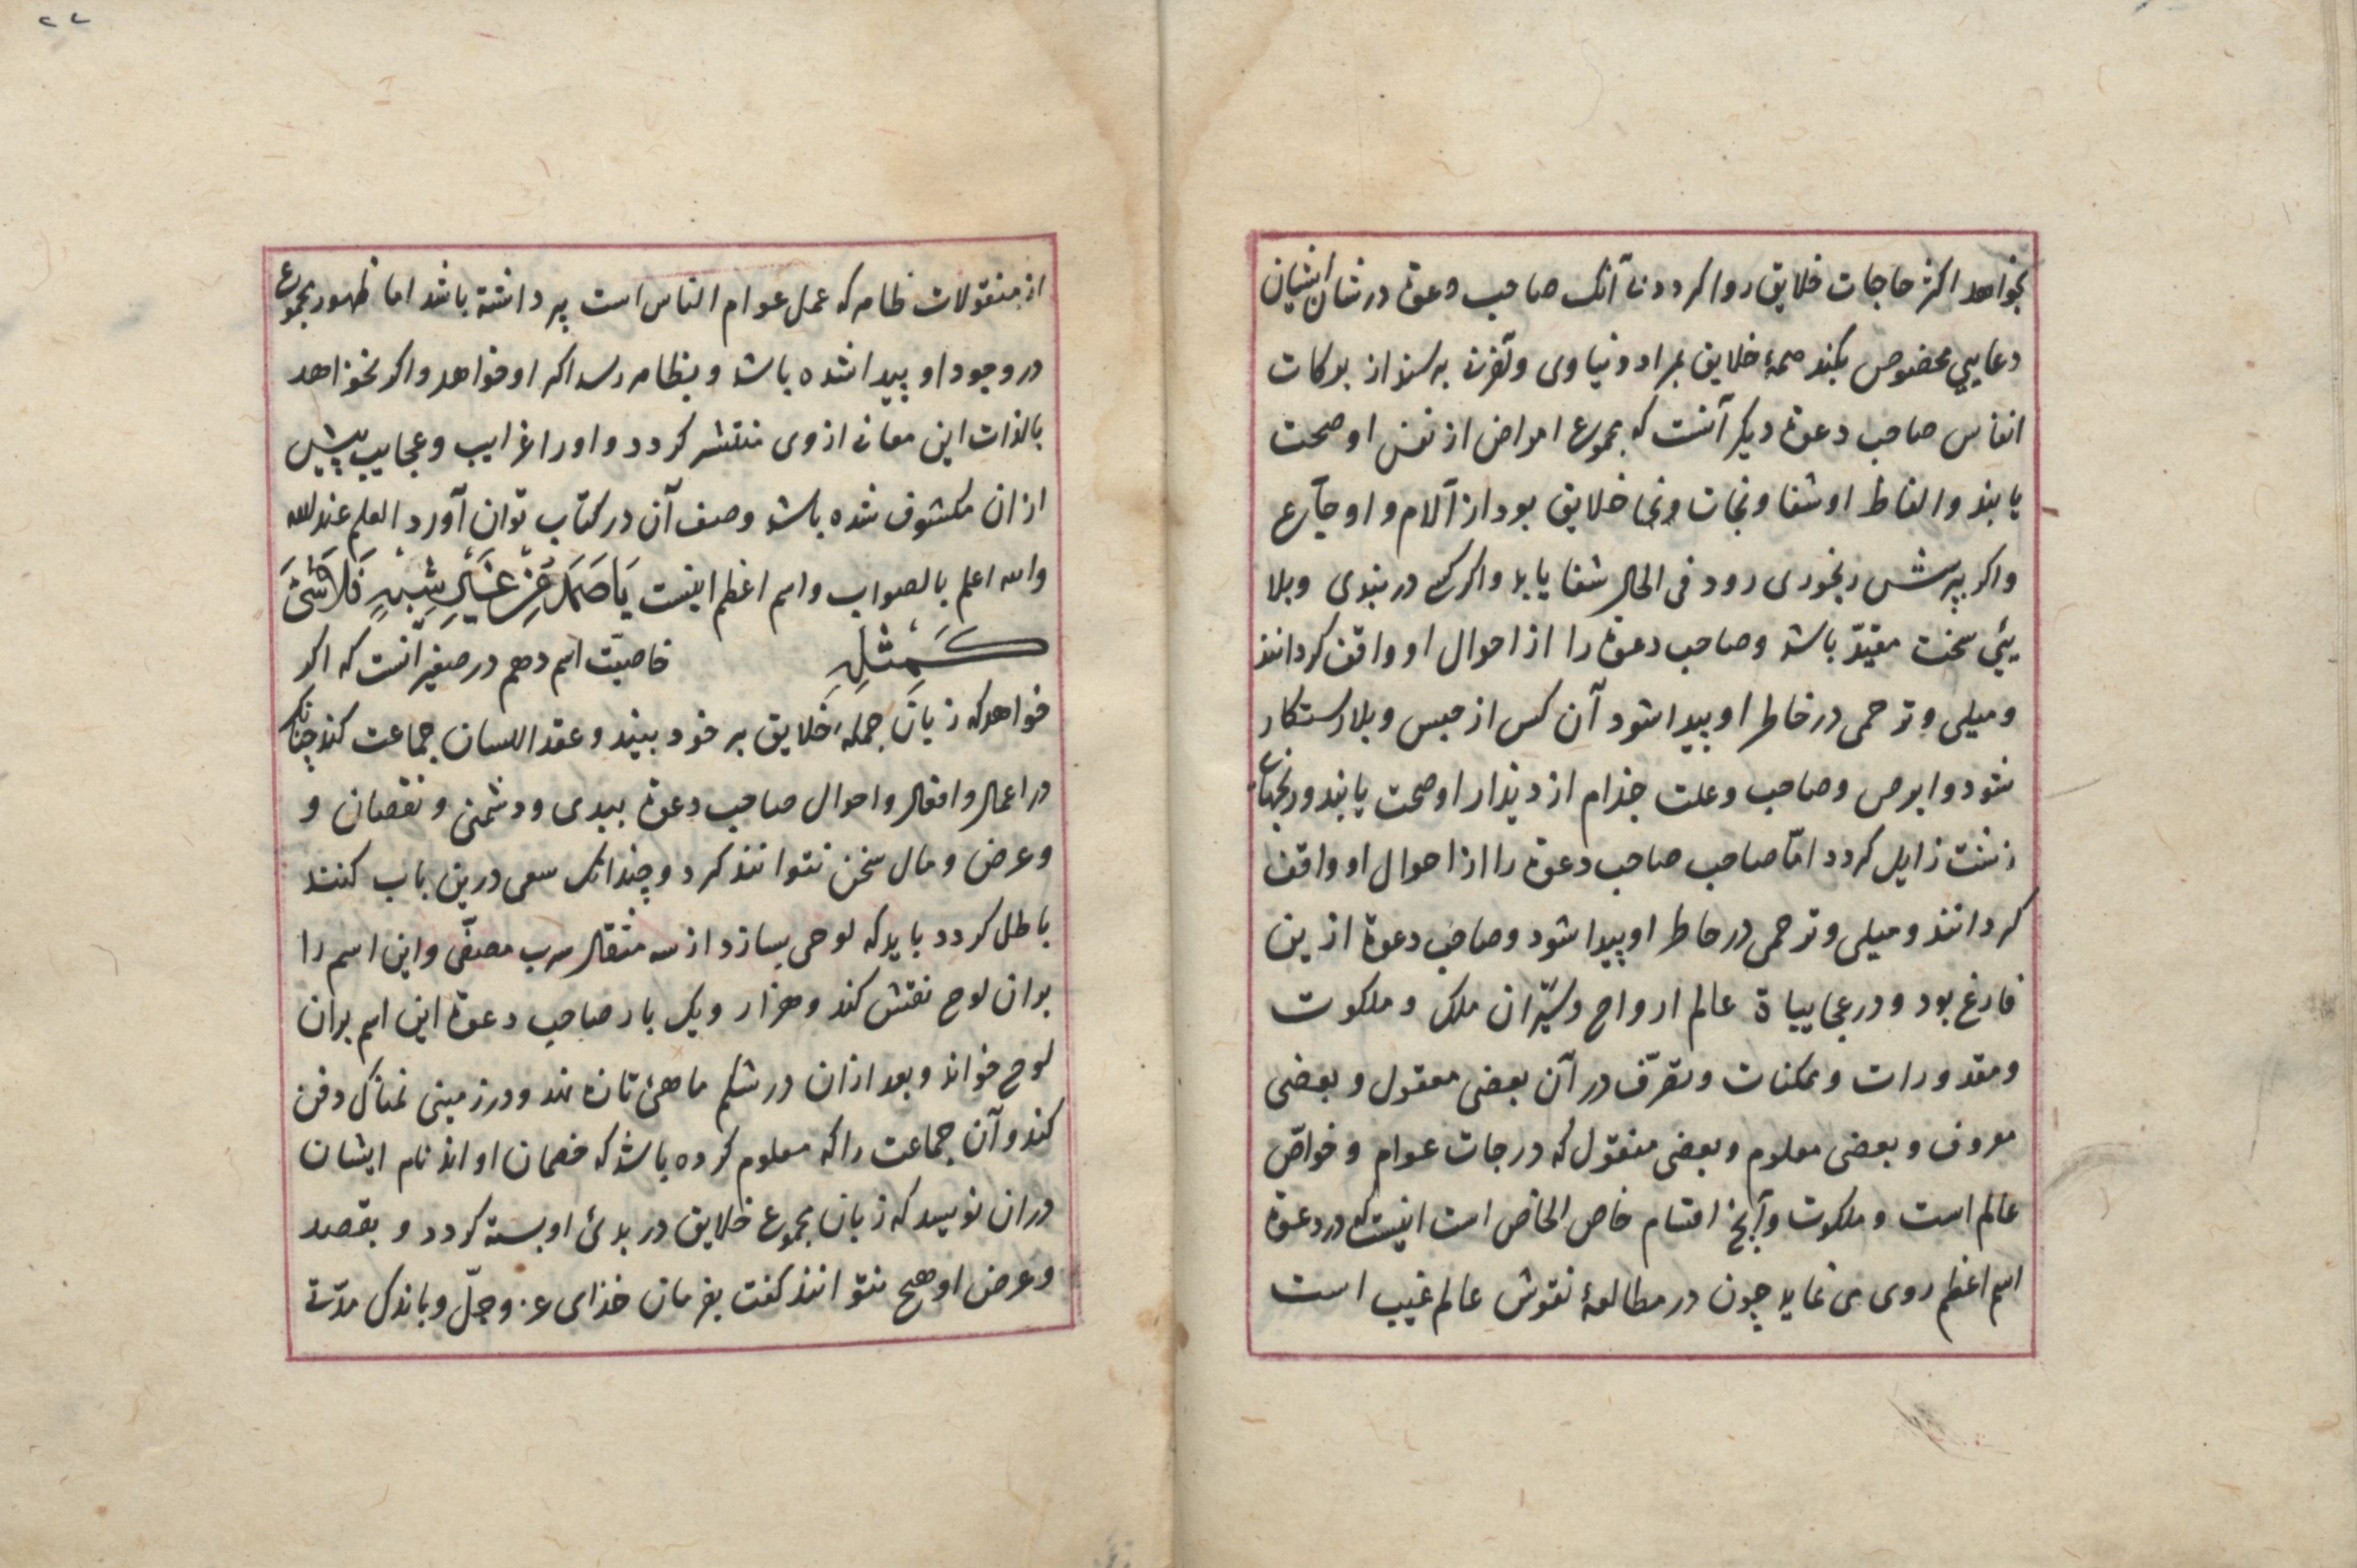 بخواهد اکثر حاجات خلایق روا کردد تا آنک صاحب دعوة در شان ایشان
دعایی مخصوص بکند همهٔ خلایق بمراد دنیاوی و آخرت برسند از برکات
انفاس صاحب دعوة دیکر آنست که مجموع امراض از نفس او صحت
یابند و الفاظ او شفا و نجات و خلایق بود از آلام و اوجاع
واکر بپرسش رنجوری رود فی الحال شفا یابد واکر کسی در بندی وبلا
یی سخت مقیّد باشد وصاحب دعوة را از احوال او واقف کردانند
ومیلی و ترحمی در خاطر او پیدا شود آن کس از حبس وبلا رستکار
شود وابرص وصاحب وعلت جذام از دیذار او صحت یابند ورنجهاء
زشت زایل کردد امّا صاحب صاحب دعوة را از احوال او واقف
کردانند ومیلی وترحمی در خاطر او پیدا شود وصاحب دعوة ازین
فارغ بود ودر عجایبیاة عالم ارواح وسیّران ملک و ملکوت
ومقدورات وممکنات وتصرّف در آن بعضی معقول وبعضی
معروف وبعضی معلوم وبعضی منقول که درجات عوام و خواصّ
عالم است وملکوت وآنچ اقسام خاص الخاص است اینست که در دعوة
اسم اعظم روی می نماید چون در مطالعهٔ نقوش عالم غیب است
۲۲
از منقولات ظاهر که عمل عوام الناس است پرداشته باشد اما ظهور مجموع
در وجود او پیدا شده باشد وبظاهر رسد اکر او خواهد واکر نخواهد
بالذات این معانی ازوی منتشر کردد و اورا غرایب وعجایب پیش
ازان مکشوف شده باشد وصف آن در کتاب توان آورد العلم عند الله
والله اعلم بالصواب واسم اعظم اینست یَا صَمَدُ عَنْ غَیْرِ شَبِیْهٍ فَلَا شَئَ
کَمِثْلِهِ خاصیّت اسم دهم در صغیر آنست که اکر
خواهد که زبان جملهٔ خلایق بر خود ببیند وعقد اللسان جماعت کند چنانک
در اعمال وافعال واحوال صاحب دعوة ببدی ودشمنی ونقصان و
وعرض ومال سخن نتوانند کرد وچندانک سعی درین باب کنند
باطل کردد باید که لوحی بسازد از سه مثقال سرب مصفّی واین اسم را
بران لوح نقش کند وهزار ویک بار صاحب دعوة این اسم بران
لوح خواند وبعد ازان در شکم ماهئ تازه نهد ودر زمینی نمناک دفن
کند وآن جماعت را که معلوم کرده باشد که خصمان او اند نام ایشان
دران نویسد که زبان مجموع خلایق در بدئ او بسته کردد و بقصد
وعرض او هیچ نتوانند کفت بفرمان خذای عز وجلّ وباندک مدّتی